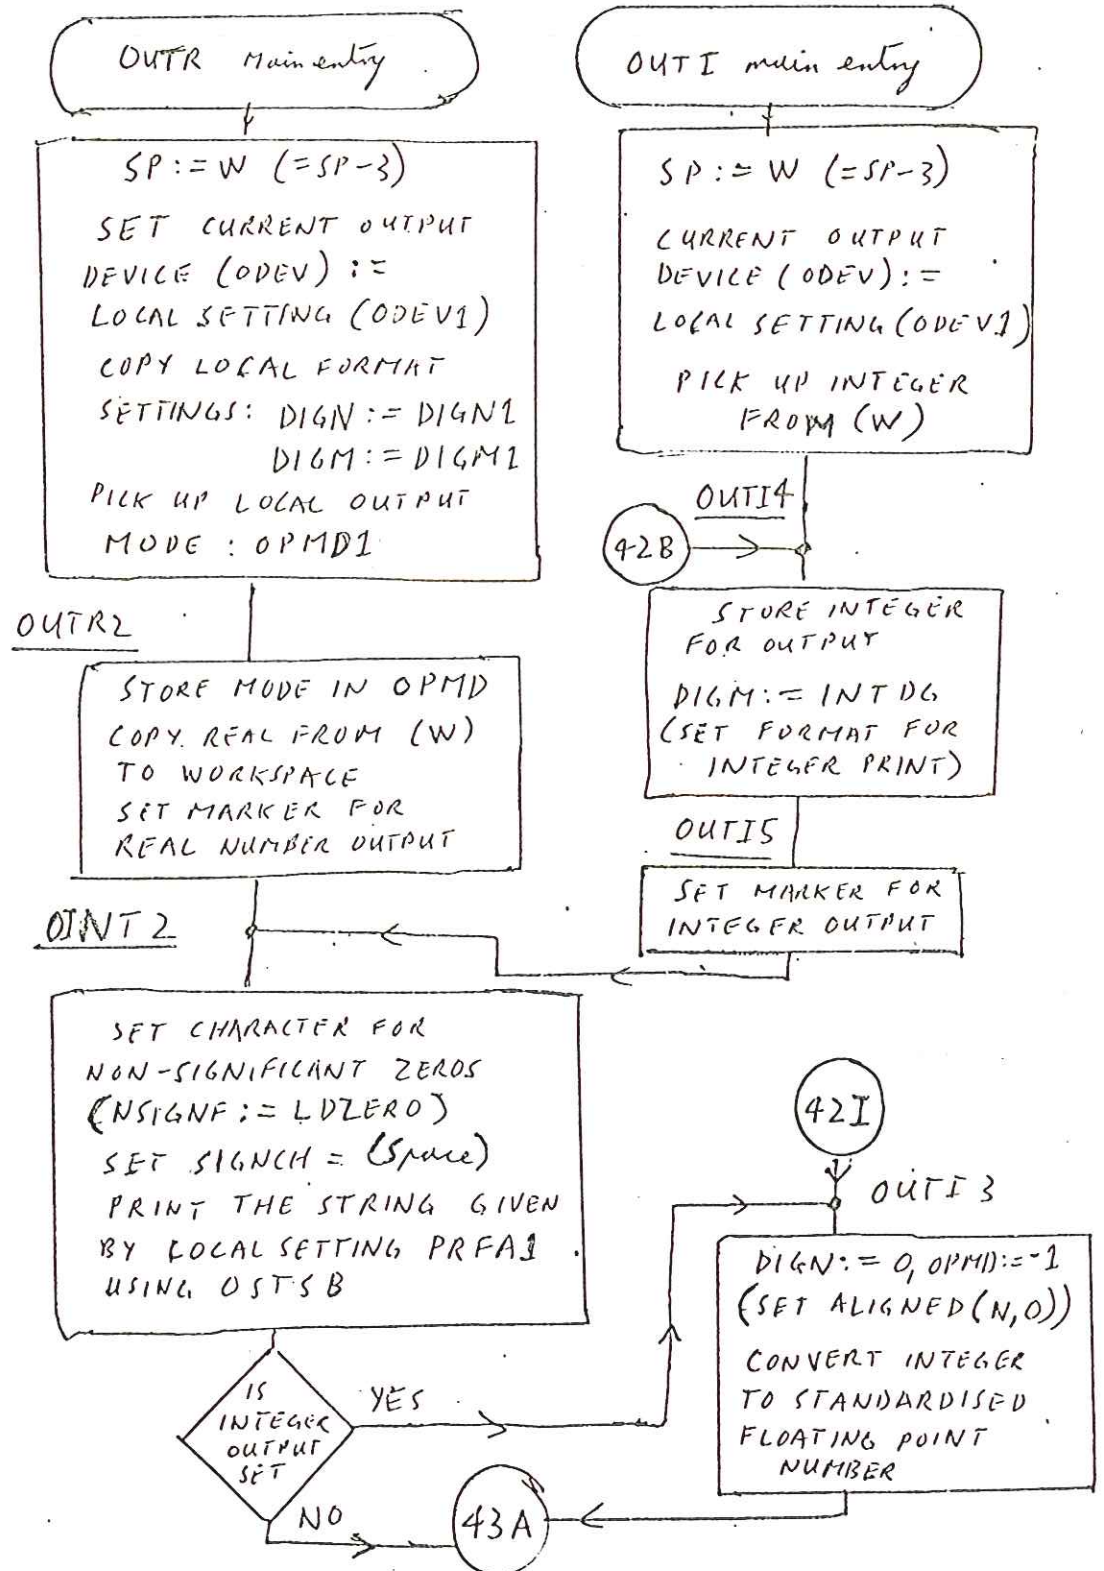 OUTR Main entry
SP:=W (=SP-3)
SET CURRENT OUTPUT
DEVICE (ODEV) :=
LOCAL SETTING (ODEV1)
COPY LOCAL FORMAT
SETTINGS: DIGN := DIGN1
DIGM := DIGM1
PICK UP LOCAL OUTPUT
MODE : OPMD1
OUTR2
STORE MODE IN OPMD
COPY REAL FROM (W)
TO WORKSPACE
SET MARKER FOR
REAL NUMBER OUTPUT
OINT2
SET CHARACTER FOR
NON-SIGNIFICANT ZEROS
(NSIGNF := LDZERO)
SET SIGNCH = (Space)
PRINT THE STRING GIVEN
BY LOCAL SETTING PRFA1
USING OSTSB
IS
INTEGER
OUTPUT
SET
YES
NO
43A
OUTI main entry
SP:=W (=SP-3)
CURRENT OUTPUT
DEVICE (ODEV) :=
LOCAL SETTING (ODEV1)
PICK UP INTEGER
FROM (W)
OUTI4
42B
STORE INTEGER
FOR OUTPUT
DIGM := INTDG
(SET FORMAT FOR
INTEGER PRINT)
OUTI5
SET MARKER FOR
INTEGER OUTPUT
42I
OUTI3
DIGN := 0, OPMD := -1
(SET ALIGNED(N,0))
CONVERT INTEGER
TO STANDARDISED
FLOATING POINT
NUMBER